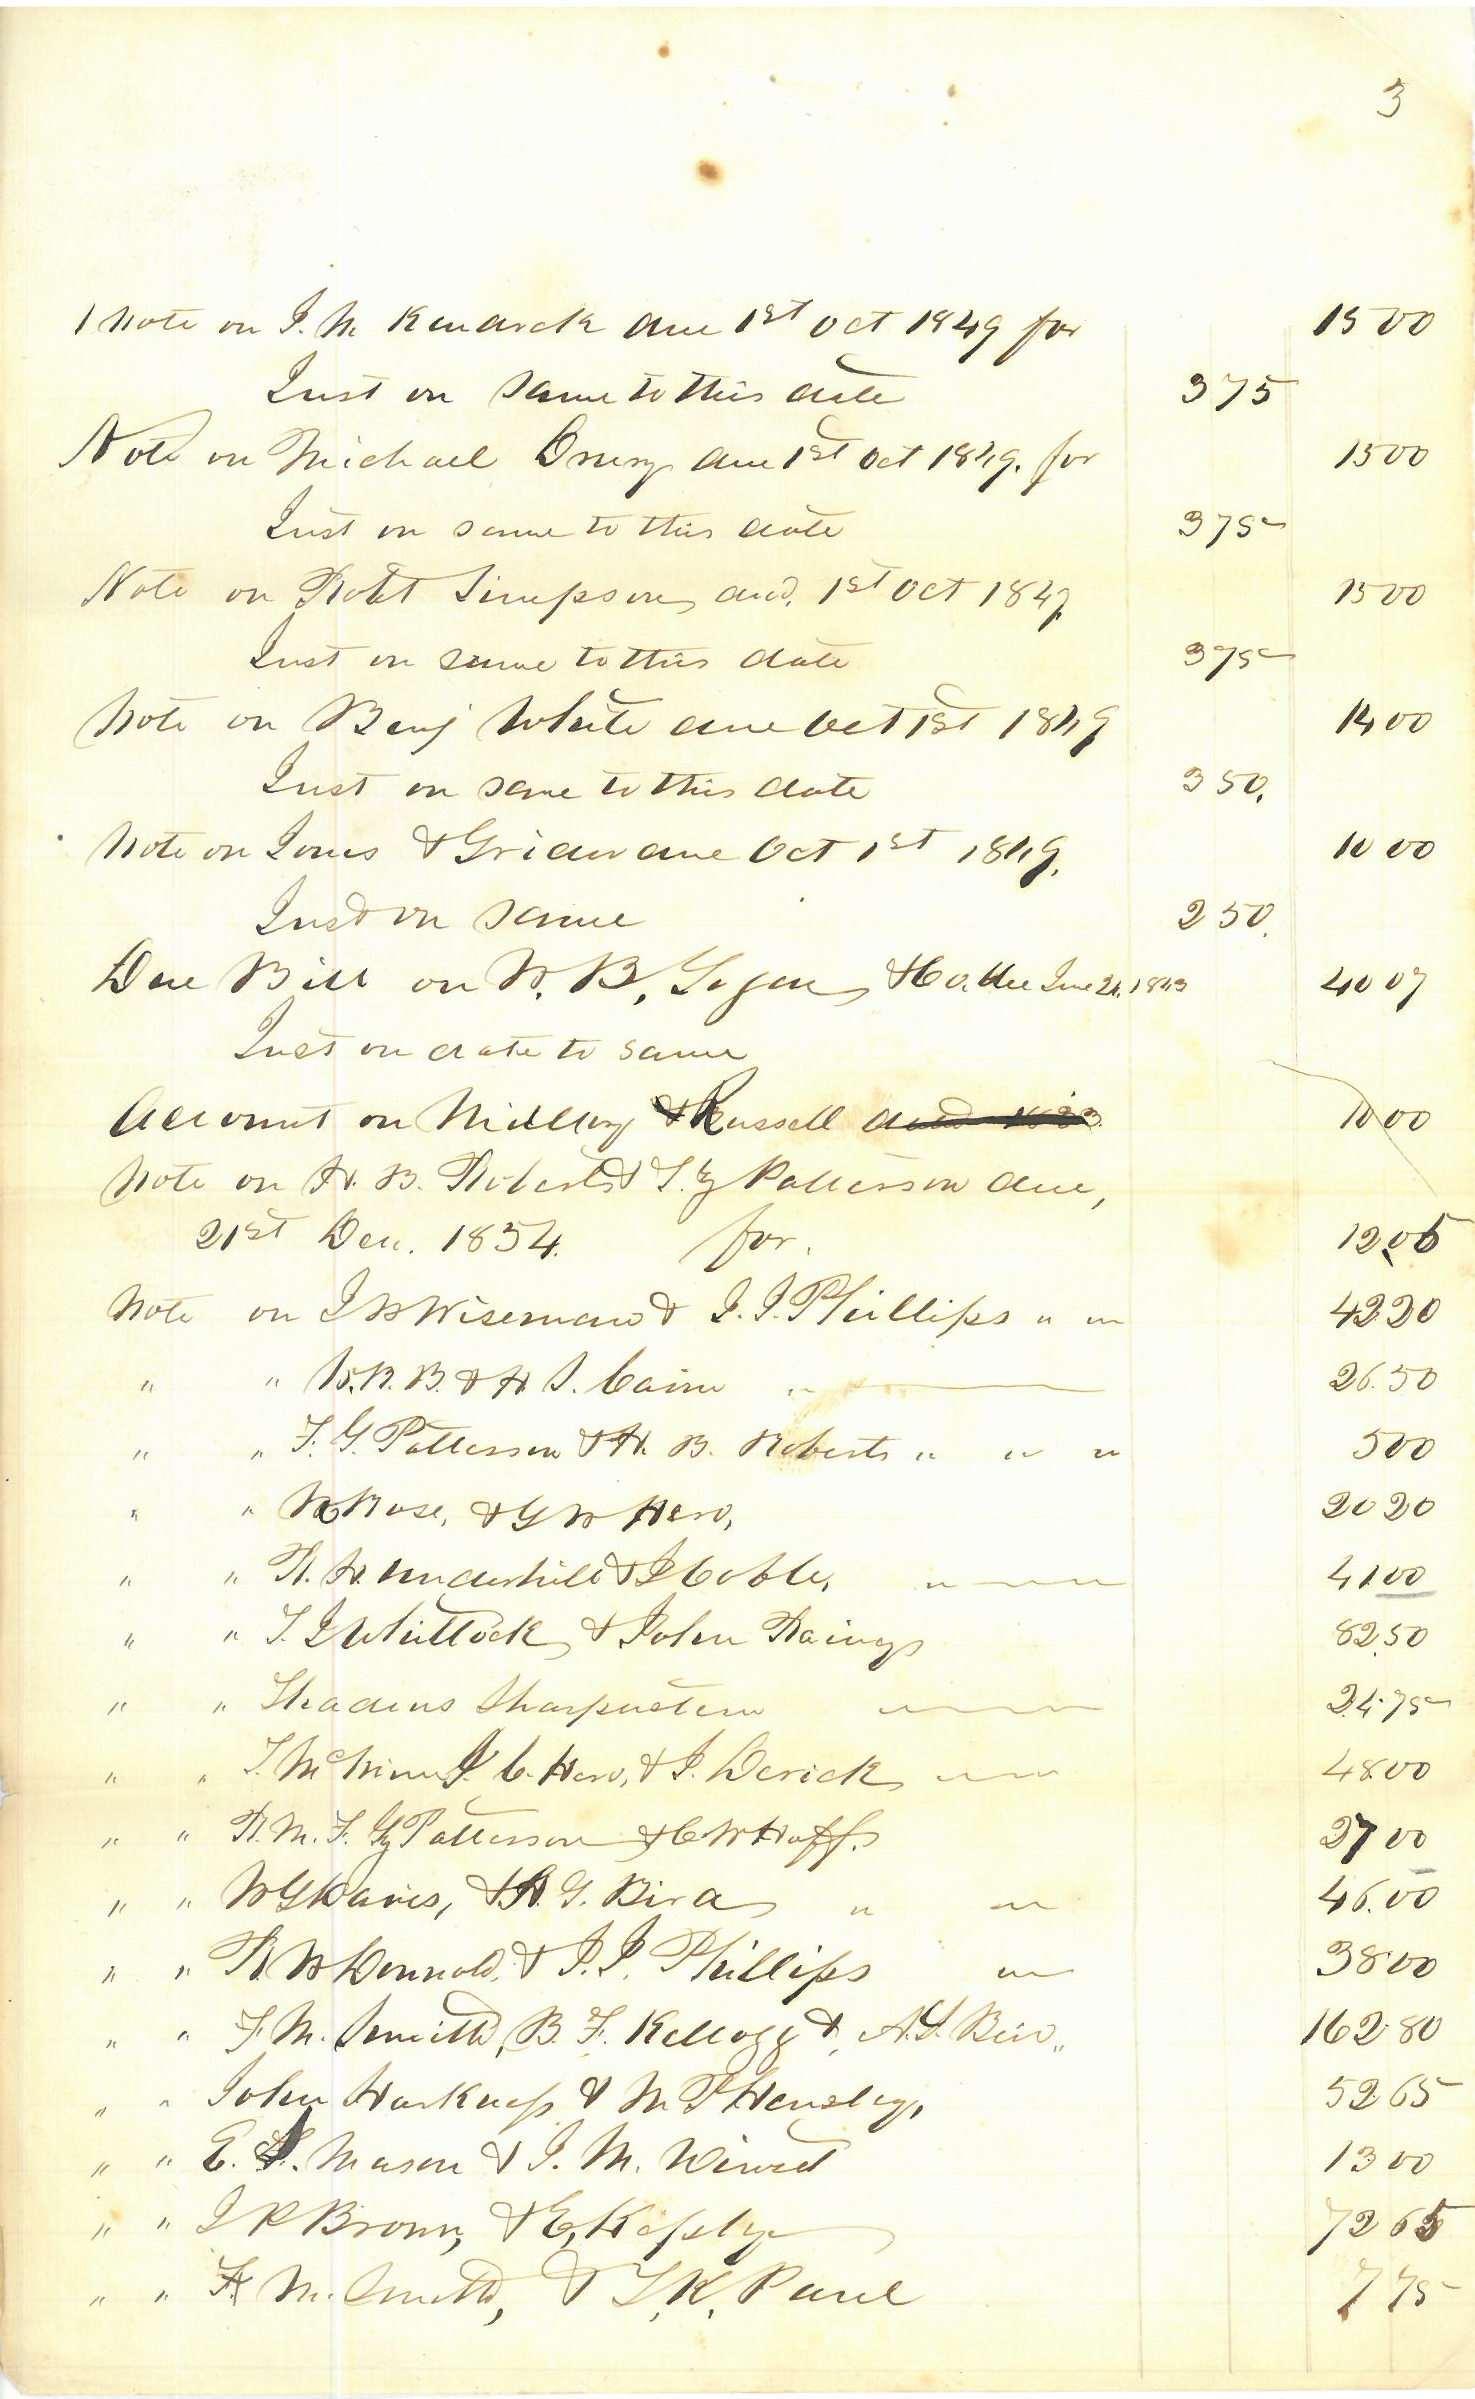 3
1 Note on J. M. Kendrick due 1st Oct 1849 for 15 00
Inst on same to this date 3 75
Note on Michael Drury due 1st Oct 1849. for 15 00
Inst on same to this date 3 75
Note on Robt Simpson, due, 1st Oct 1849 15 00
Inst on same to this date 3 75
Note on Benj White due Oct 1st 1849 14 00
Inst on same to this date 3 50.
Note on Jones & due Oct 1st 1849. 10 00
Inst on same 2 50.
Due Bill on W. B. Logan & Co. June 21, 40 07
Inst on date to same
Account on & Russell 10 00
Note on H. B. Roberts & F. G Patterson due,
21st Dec. 1854. for. 12,05
Note on J W Wiseman & J. J. Phillips " " 42 20
" " W. R. B. & H S. Cain " 26.50
" " F. G. Patterson & H. B. Roberts " " " 5 00
" " W Rose, & G W Hero, 20 20
" " R. H. Underhill & J Coble, " 41 00
" " T. J Whitlock, & John Rainey 82.50
" " Thadeus Sharpestein 24.75
" " T. McMinn, J. C. Hero, & J. Derick 48.00
" " R. M. F. G Patterson & C W Hoff. 27 00
" " W G Davis, & A. G. Bird " " 46.00
" " R W Donnold, & J. J. Phillips " 38.00
" " F. M. Smith, B. F. Kellogg & A. G. Bird " 162 80
" " John Harkness & M P Hensley, 52 65
" " E. S. Mason & J. M. 13 00
" " J R Brown, & E, 72 65
" " F. M. Smith, & T, K, Paul 7 75